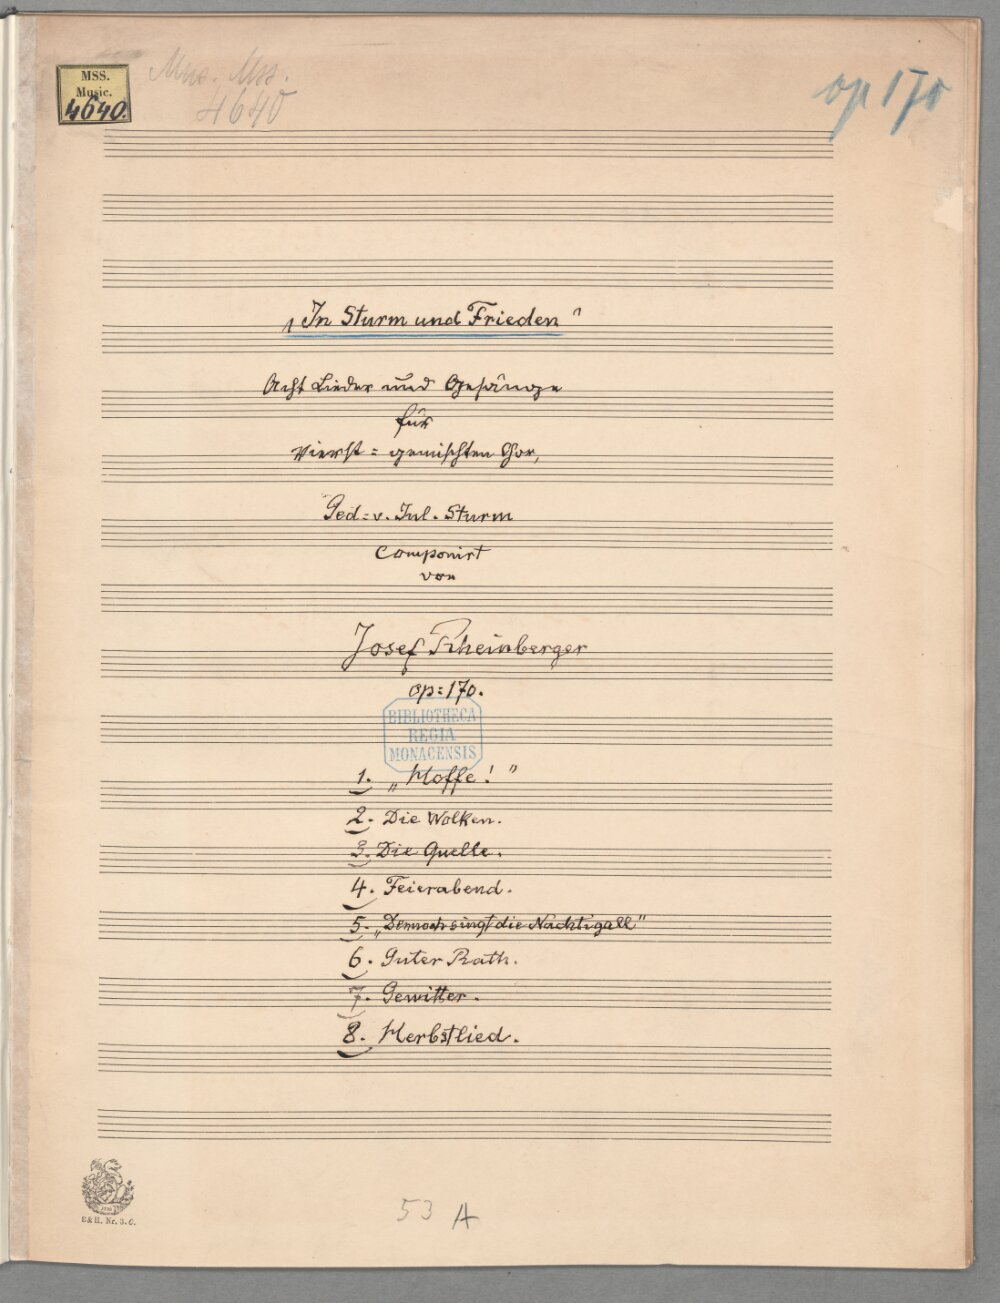 MSS.
Music.
4640.
Mus. Mss.
4640
op 170
„In Sturm und Frieden"
Acht Lieder und Gesänge
für
vierst= gemischten Chor,
Ged= v. Jul. Sturm
componirt
von
Josef Rheinberger
op=170.
BIBLIOTHECA
REGIA
MONACENSIS
1. „Hoffe!"
2. Die Wolken.
3. Die Quelle.
4. Feierabend.
5. „Dennoch singt die Nachtigall"
6. Guter Rath.
7. Gewitter.
8. Herbstlied.
B & H. Nr. 3. C.
53 A